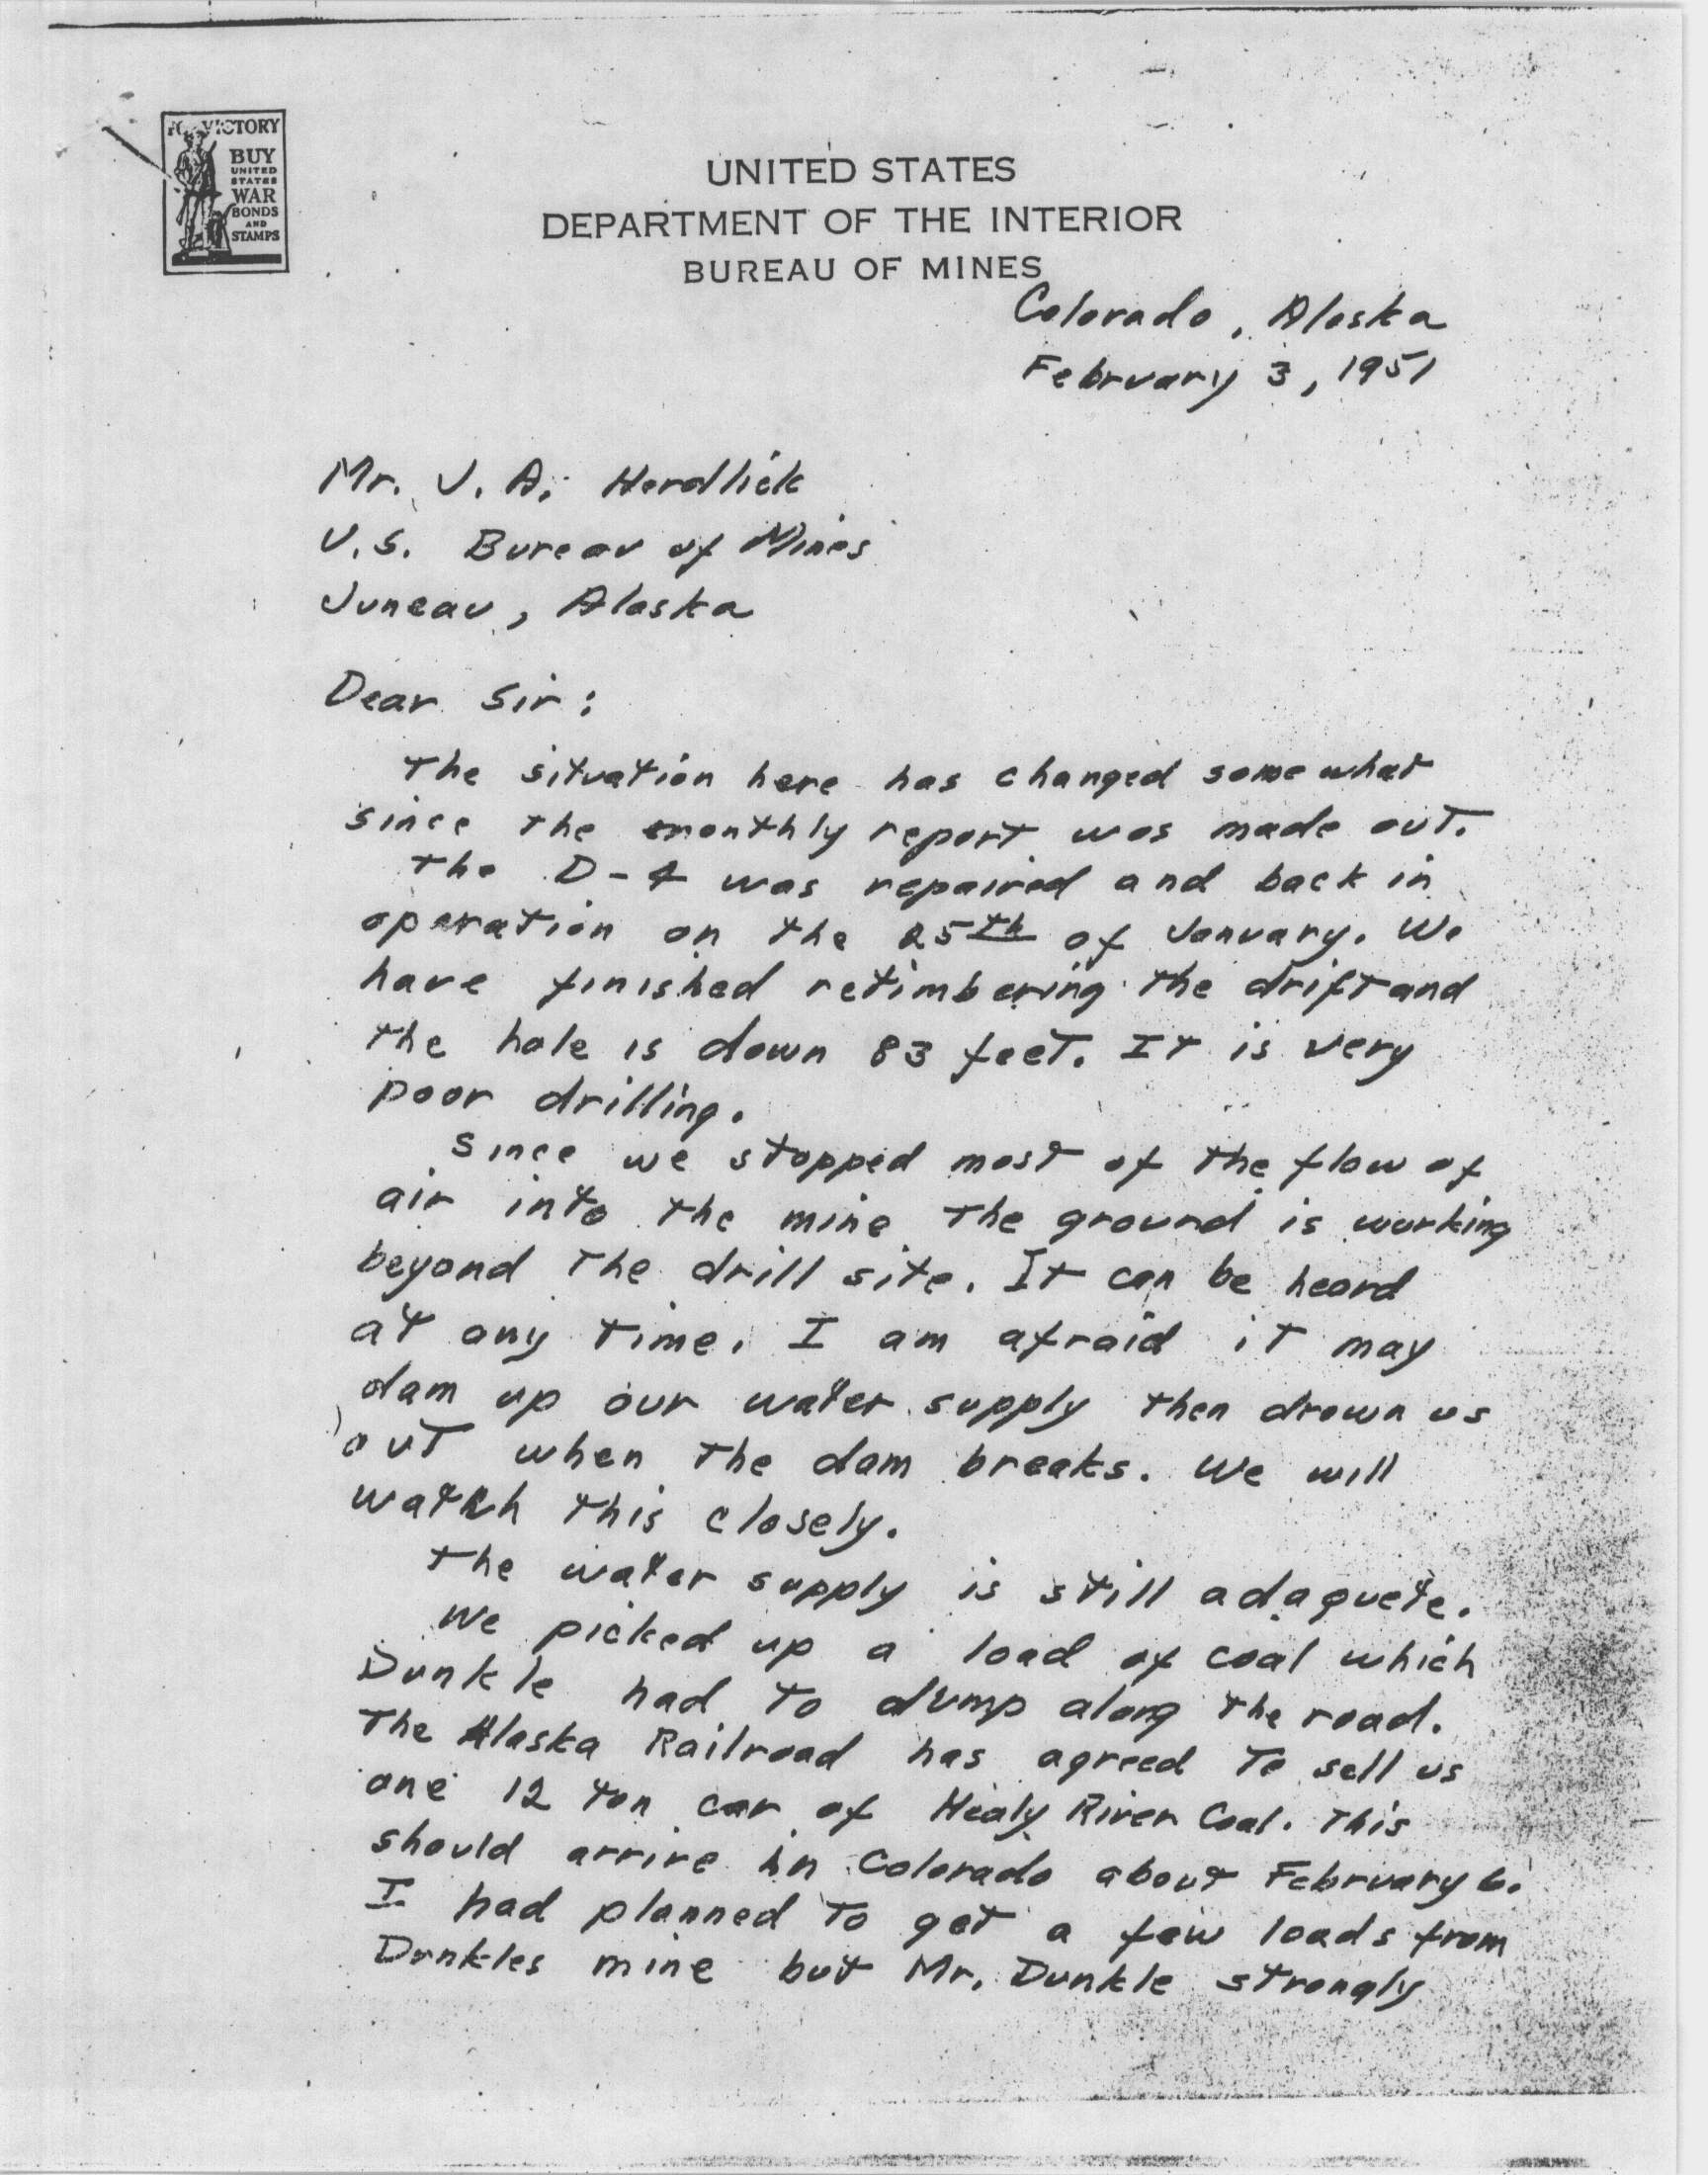 FOR VICTORY
BUY
UNITED
STATES
WAR
BONDS
AND
STAMPS
UNITED STATES
DEPARTMENT OF THE INTERIOR
BUREAU OF MINES
Colorado, Alaska
February 3, 1951
Mr. J. A. Herdlick
U.S. Bureau of Mines
Juneau, Alaska
Dear Sir:
The situation here has changed somewhat
since the monthly report was made out.
The D-4 was repaired and back in
operation on the 25th of January. We
have finished retimbering the drift and
the hole is down 83 feet. It is very
poor drilling.
Since we stopped most of the flow of
air into the mine the ground is working
beyond the drill site. It can be heard
at any time. I am afraid it may
dam up our water supply then drown us
out when the dam breaks. We will
watch this closely.
The water supply is still adaquete.
We picked up a load of coal which
Dunkle had to dump along the road.
The Alaska Railroad has agreed to sell us
one 12 ton car of Healy River Coal. This
should arrive in Colorado about February 6.
I had planned to get a few loads from
Dunkles mine but Mr. Dunkle strongly